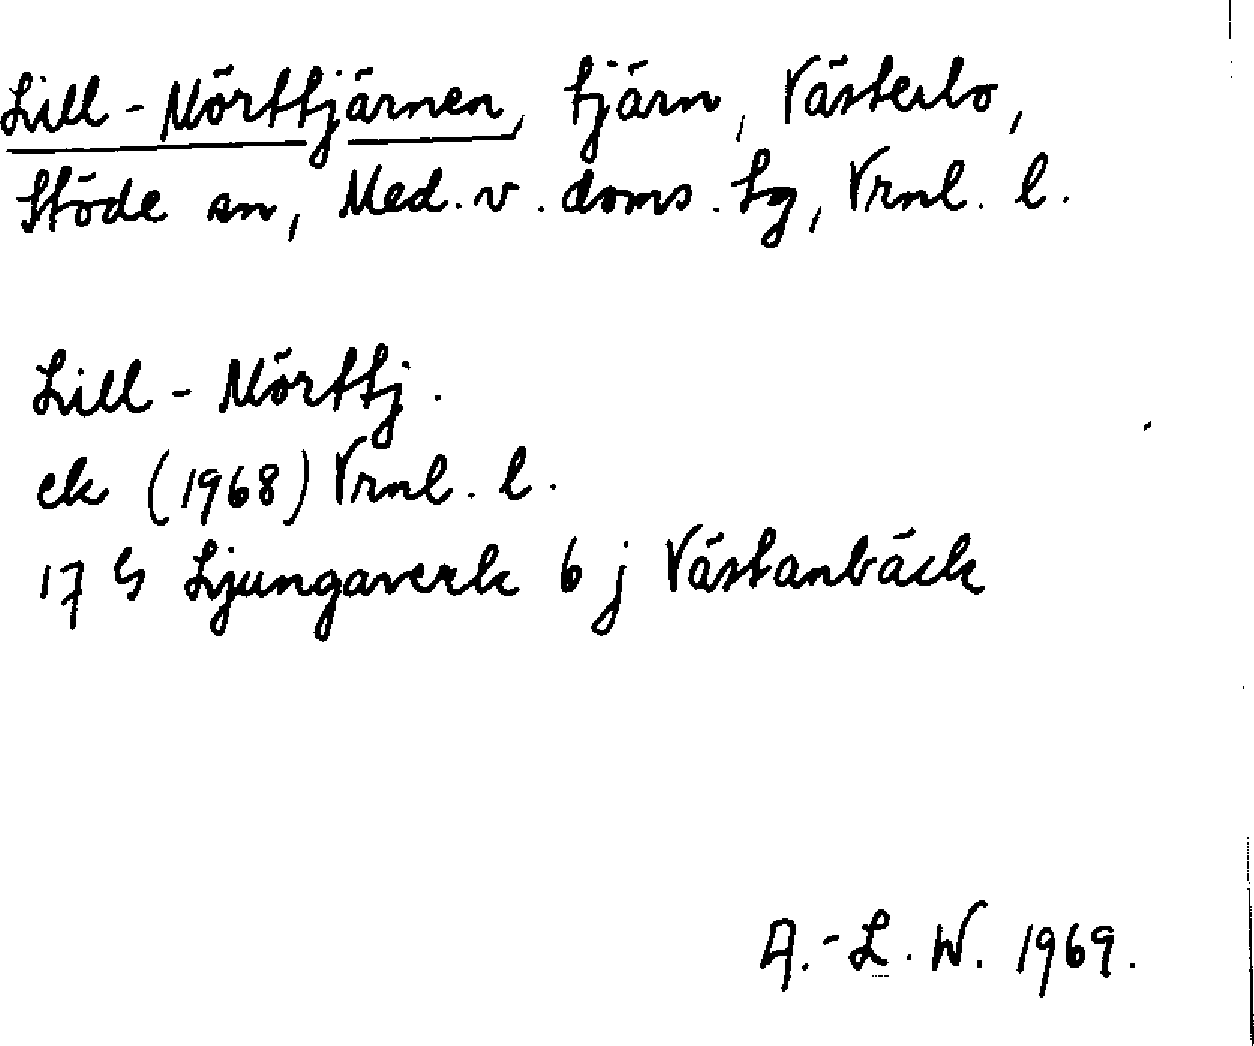 Lill-Mörttjärnen, tjärn, Västerlo,
Stöde sn, Med. v. doms. tg, Vrnl. l.
Lill-Mörttj.
ek (1968) Vrnl. l.
17 G Ljungaverk 6 j Västanbäck
A.-L. W. 1969.